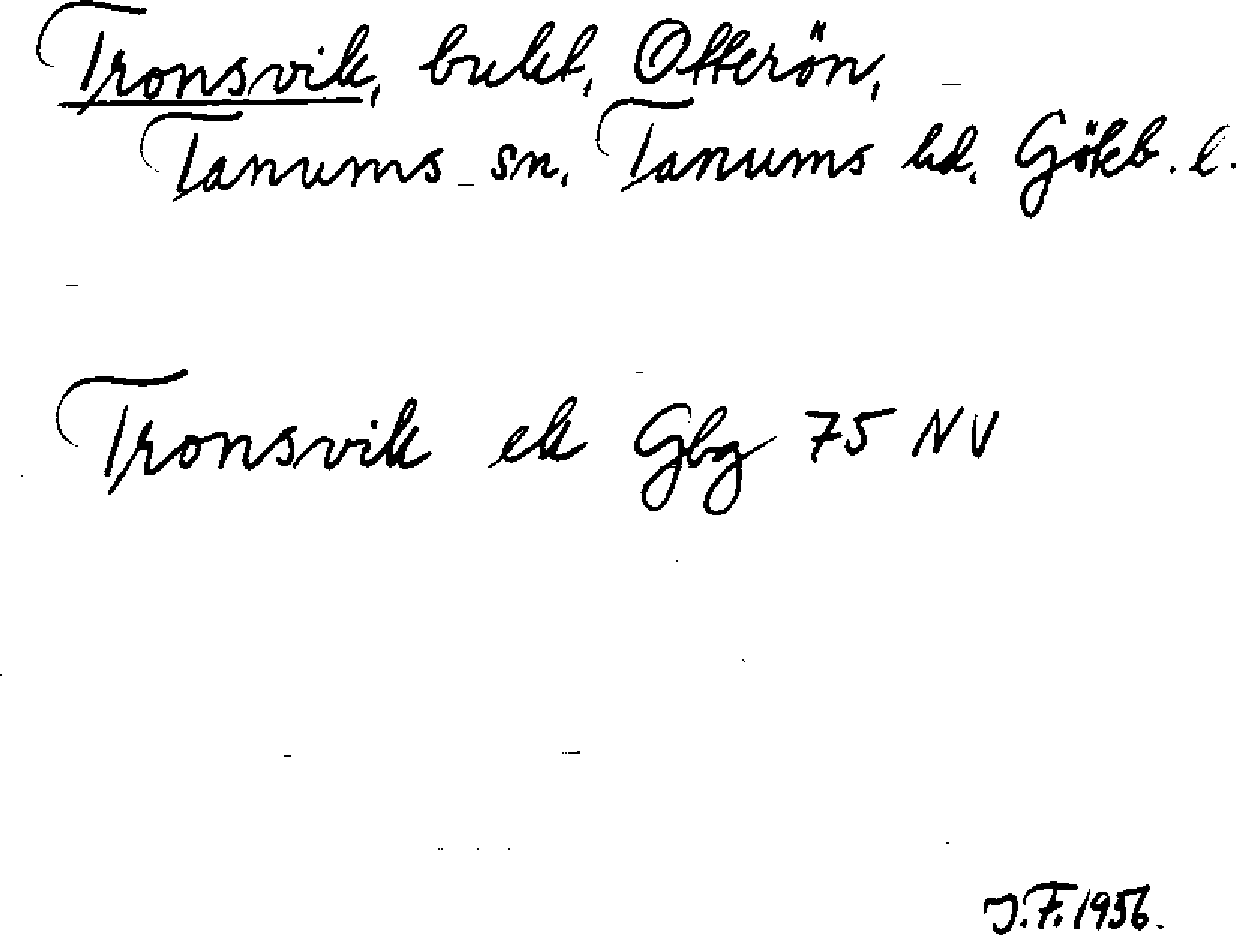 Tronsvik, bukt, Otterön,
Tanums sn, Tanums hd, Gökb. l.
Tronsvik ek Gbg 75 NV
J.F. 1956.